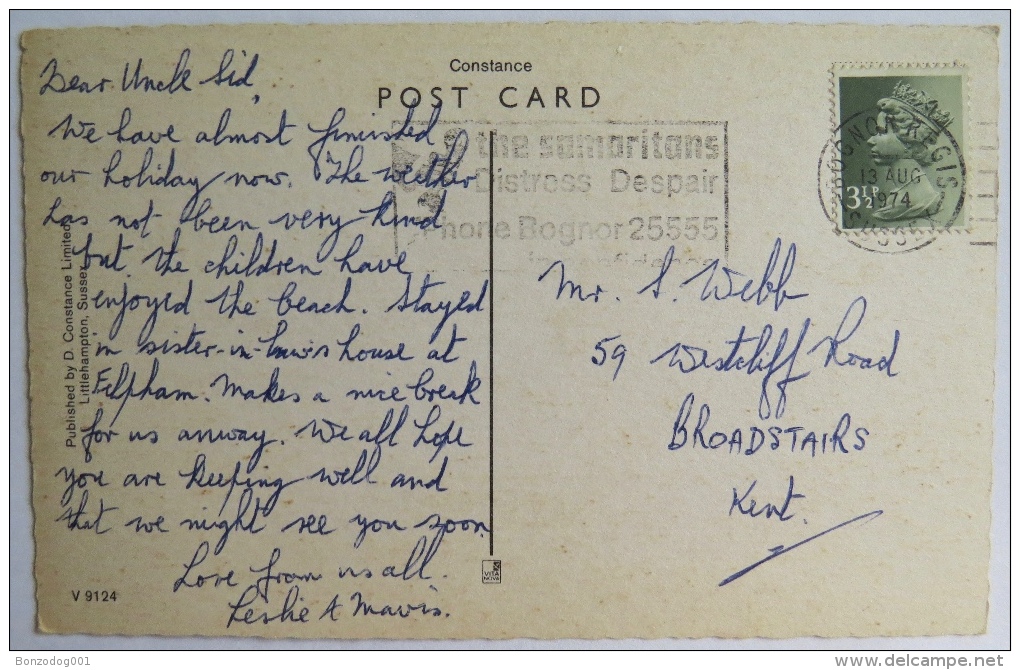 Constance
POST CARD
Dear Uncle Sid,
We have almost finished
our holiday now. The weather
has not been very kind
but the children have
enjoyed the beach. Stayed
in sister-in-law's house at
Felpham. Makes a nice break
for us anway. We all hope
you are keeping well and
that we might see you soon.
Love from us all.
Leslie & Mavis.
the samaritans
Distress Despair
Phone Bognor 25555
in confidence
BOGNOR REGIS
13 AUG
1974
SUSSEX
3½P
Mr. S. Webb
59 Westcliff Road
BROADSTAIRS
Kent.
Published by D. Constance Limited
Littlehampton, Sussex
V 9124
VITA
NOVA
Bonzodog001
delcampe.net